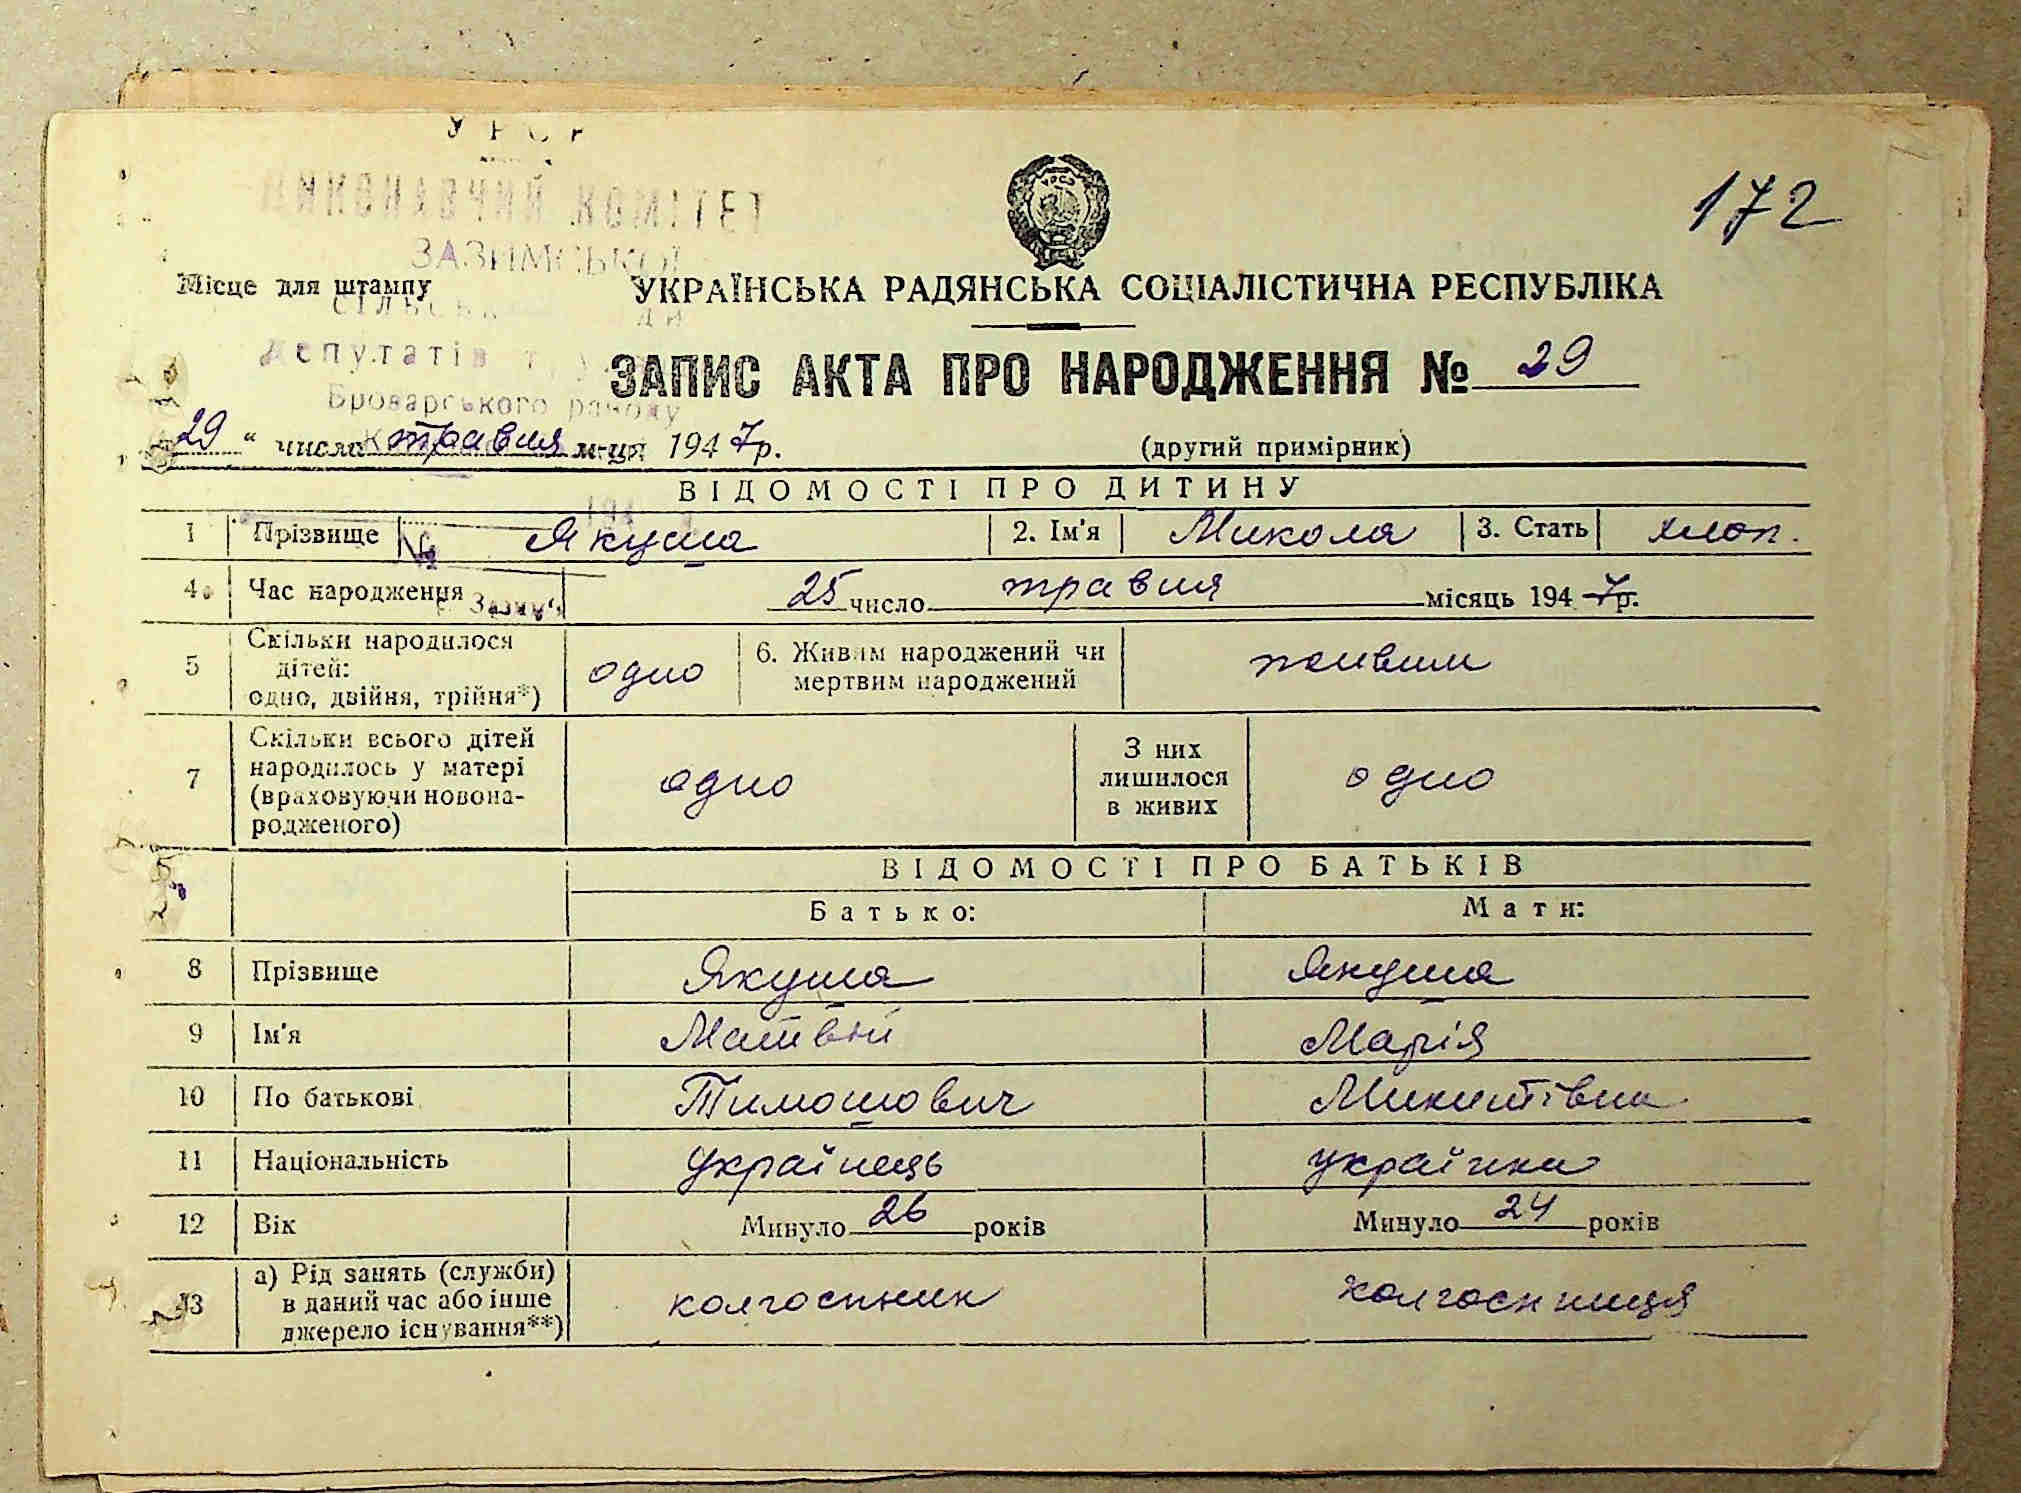 172
УРСР
ВИКОНАВЧИЙ КОМІТЕТ
ЗАЗИМСЬКОЇ
Місце для штампу
УКРАЇНСЬКА РАДЯНСЬКА СОЦІАЛІСТИЧНА РЕСПУБЛІКА
депутатів
ЗАПИС АКТА ПРО НАРОДЖЕННЯ № 29
Броварського району
29 " число травня м-ця 1947р.
(другий примірник)
ВІДОМОСТІ ПРО ДИТИНУ
1 Прізвище Якуша 2. Ім'я Микола 3. Стать хлоп.
4. Час народження 25 число травня місяць 1947р.
5 Скільки народилося дітей: одно, двійня, трійня*) одно 6. Живим народжений чи мертвим народжений живим
7 Скільки всього дітей народилось у матері (враховуючи новонародженого) одно З них лишилося в живих одно
ВІДОМОСТІ ПРО БАТЬКІВ
Батько: Мати:
8 Прізвище Якуша Якуша
9 Ім'я Матвій Марія
10 По батькові Тимошович Микитівна
11 Національність українець українка
12 Вік Минуло 26 років Минуло 24 років
13 а) Рід занять (служби) в даний час або інше джерело існування**) колгоспник колгоспниця